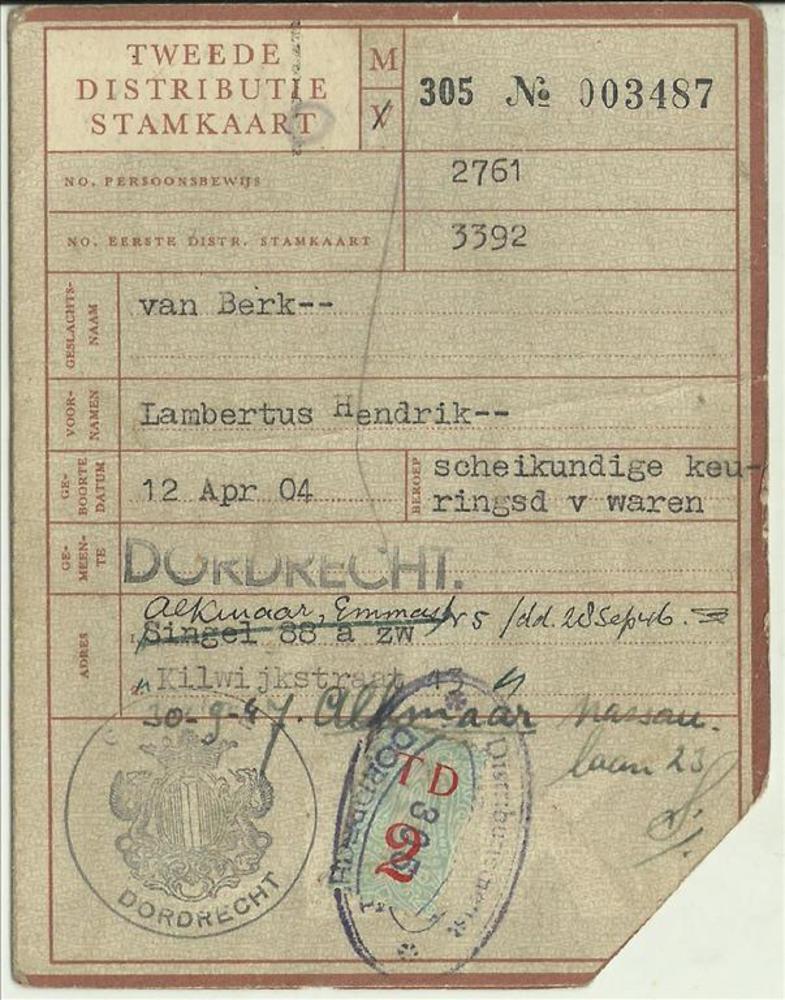 TWEEDE
DISTRIBUTIE
STAMKAART
M
V
305 № 003487
NO. PERSOONSBEWIJS 2761
NO. EERSTE DISTR. STAMKAART 3392
GESLACHTS-
NAAM
van Berk--
VOOR-
NAMEN
Lambertus Hendrik--
GE-
BOORTE
DATUM
12 Apr 04
BEROEP
scheikundige keu-
ringsd v waren
GE-
MEEN-
TE
DORDRECHT.
ADRES
Alkmaar, Emmastr 5 /dd. 28 Sep 46.
Singel 88 a zw
Kilwijkstraat 43
30-9-47. Alkmaar Nassau-
laan 23
DORDRECHT
TD
2
305
DORDRECHT
Distributiedienst